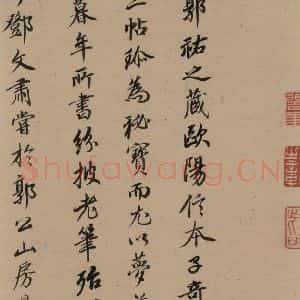 郭祐之藏歐陽信本子奇
二帖珎為秘寶而尤以夢
暮年所書紛披老筆殆
鄧文肅嘗於郭公山房
Shufawang.cn